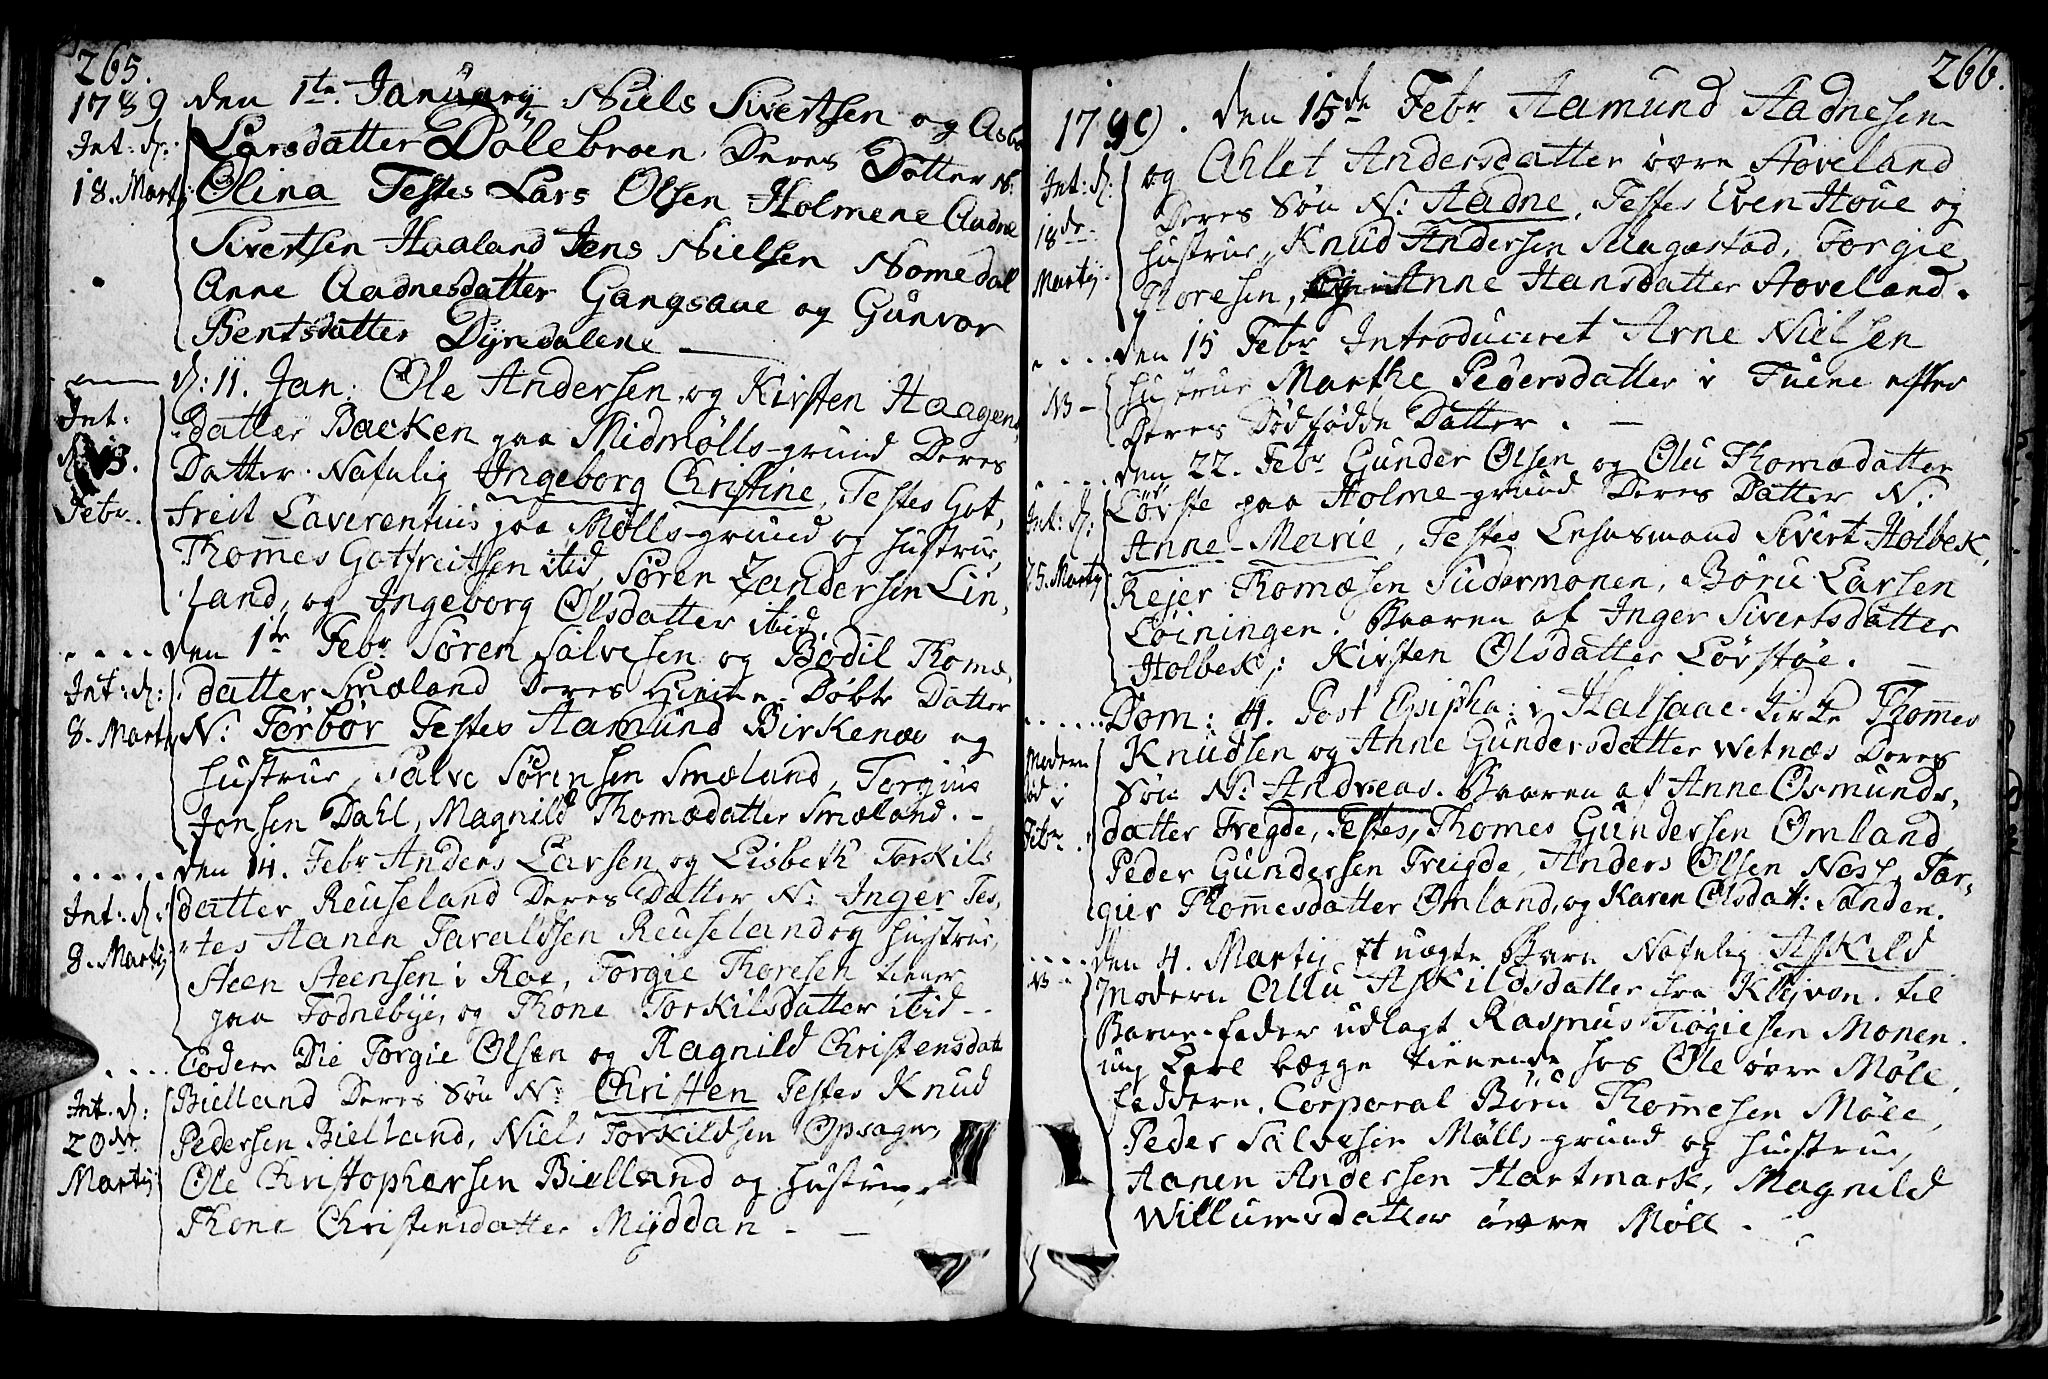 265.
1789 den 1te. January Niels Sivertsen og Asb
Int: d: Larsdatter Dölebroen. Deres Datter N:
18. Martij Olina Testes Lars Olsen Holmene Aadne
Sivertsen Haaland Jens Nielsen Homedal
Anne Aadnesdatter Gangsaae og Gunvor
Bentsdatter Dyredalene
d: 11. Jan: Ole Andersen og Kirsten Haagens
Int: datter Backen paa Midmölls-grund Deres
Datter Nafnlig Ingeborg Christine, Testes Got,
Febr. freit Laverentius paa Mölls-grund og hustrue,
Thomes Gotfreitsen itid, Sören Zandersen Lin,
land, og Ingeborg Olsdatter itid
den 1te Febr Sören Salvesen og Bodil Thomæ,
Int: d: datter Smæland Deres Hjemme Döbte Datter
8. Martij N: Torbör Testes Aamund Birkenæs og
hustrue, Salve Sörensen Smæland, Torgius
Jonsen Dahl, Magnild Thomædatter Smæland. -
den 14. Febr Anders Larsen og Lisbeth Torkils
Int: d: datter Reuseland Deres Datter N: Inger Tes,
8. Martij tes Aanen Taraldsen Reuseland og hustrue,
Steen Steensen i Roe, Torgie Thoresen tiener
paa Todnebye, og Thone Torkilsdatter itid -
Eodem Die Torgie Olsen og Ragnild Christensdatt
Int. d: Bielland Deres Sön N: Christen Testes Knud
20de. Pedersen Bielland, Niels Torkildsen Opsager,
Martij Ole Christophersen Bielland og hustrue,
Thone Christensdatter Myddan - -
266.
den 15de Febr Aamund Aadnesen
Int: d: og Ahlet Andersdatter övre Stoveland
18de. Deres Sön N: Aadne, Testes Even Houe og
hustrue, Knud Andersen Saagestad, Torgie
Martij Thoresen, Anne Hansdatter Stoveland.
den 15 Febr Introduceret Arne Nielsen
NB - hustrue Marthe Pedersdatter i Tuene efter
Deres Dödfödde Datter. -
den 22. Febr Gunder Olsen og Olu Thomædatter
Int: d: Lövste paa Holme-grund Deres Datter N:
Anne-Marie, Testes Lensmand Sivert Holbek,
25. Martij Rejer Thomæsen Sudermonen, Böru Larsen
Löiningen. Baaren af Inger Sivertsdatter
Holbek, Kirsten Olsdatter Lövstöe. -
Dom: 4. Post Epipha: i Halsaae-kirke Thomes
Modern Knudsen og Anne Gundersdatter Wetnæs Deres
död i Sön N: Andreas. Baaren af Anne Osmunds,
Febr. datter Tregde, Testes, Thomes Gundersen Omland
Peder Gundersen Treigde, Anders Olsen Næss, Tar,
gier Thomesdatter Omland, og Karen Olsdatt: Sanden.
den 4. Martij Et uægte Barn Nafnlig Askild
NB - Modern Allu Askildsdatter fra Klejvan. til
Barne-fader udlagt Rasmus Tiögiesen Monen.
ung Karl bægge tienende hos Ole övre Möle,
faddere. Corporal Böru Thomesen Möle,
Peder Salvesen Mölls-grund og hustrue,
Aanen Andersen Hartmark, Magnild
Willumsdatter övre Möll.